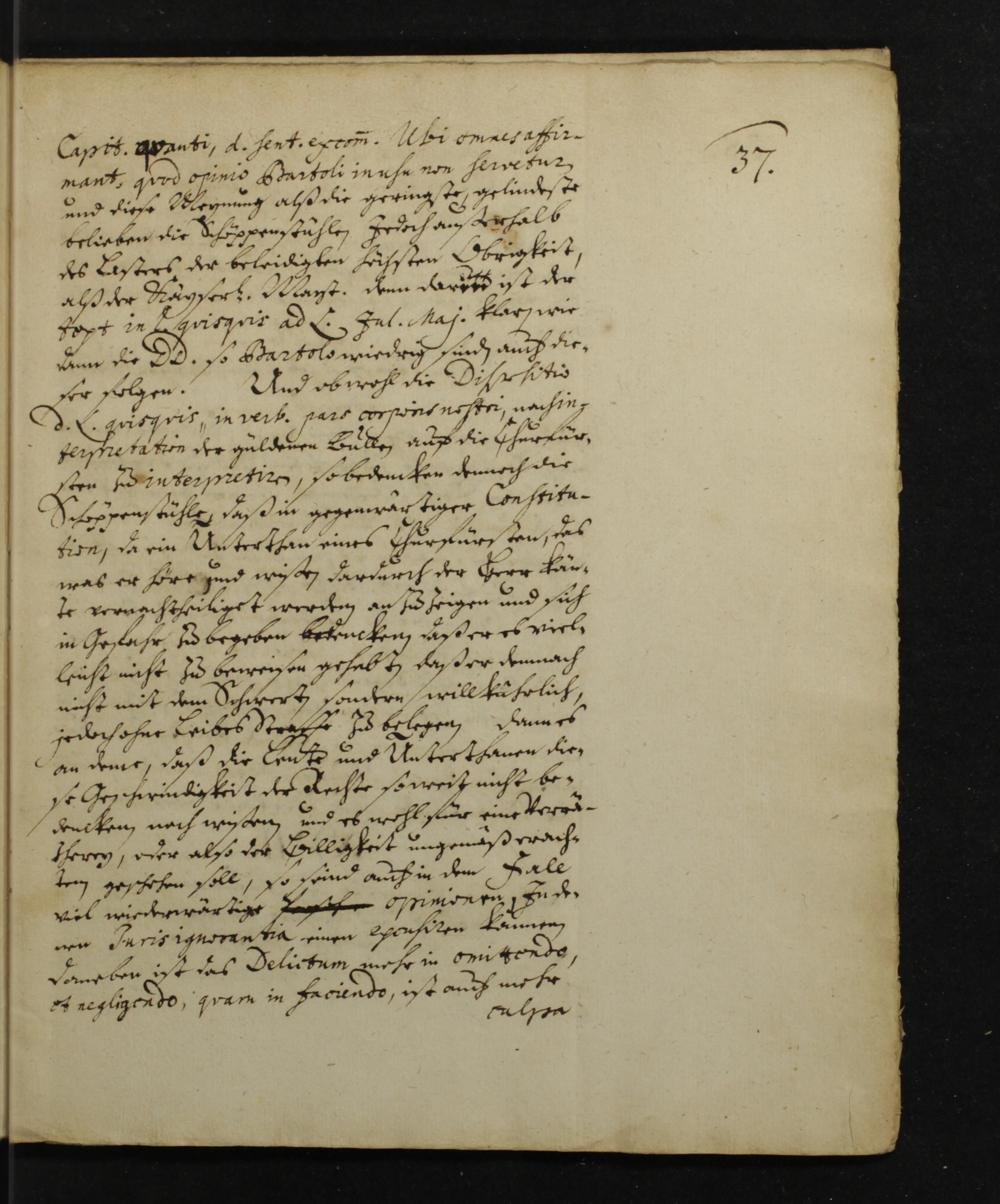 37.
Capit. quanti, d. sent. excom̄. Ubi omnes affir-
mant, quod opinio Bartoli in usu non servetur
und diese Meynung alß die geringste, gelindeste
belieben die Schöppenstühle, Jedoch außerhalb
des Lasters der beleidigten höchsten Obrigkeit,
alß der Käyserl. Mayt. denn darin ist der
text in L. quisquis ad L. Jul. Maj. klar, wie
dann die DD. so Bartolo wiedrig sind, auch die-
ser folgen. Und obwohl die Dispositio
d. L. quisquis, in verb. pars corporis nostri, nach in-
terpretation der güldenen Bullen auf die Churfür-
sten zu interpretiren, so bedencken dennoch die
Schöppenstühle, daß in gegenwärtiger Constitu-
tion, da ein Unterthan eines Churfürsten, das
was er höre und wißen dardurch der Herr kön-
te vernachtheiliget werden anzuzeigen und sich
in Gefahr zu begeben bedencken, daß er es viel-
leicht nicht zu beweisen gehabt, daß er demnach
nicht mit dem Schwert, sondern willkührlich,
jedoch ohne Leibes Straffe zu belegen, dann es
an deme, daß die Leute und Unterthanen die-
se Geschwindigkeit der Rechte so weit nicht be-
dencken, noch wißen, und es wohl für eine Verrä-
therey, oder also der Billigkeit ungemäß erach-
ten, geschehen soll, so seind auch in dem Fall
viel wiederwärtige opinionen, In de-
nen Juris ignorantia einen excusiren können,
daneben ist das Delictum mehr in omittendo,
et negligendo, quam in faciendo, ist auch mehr
culpa